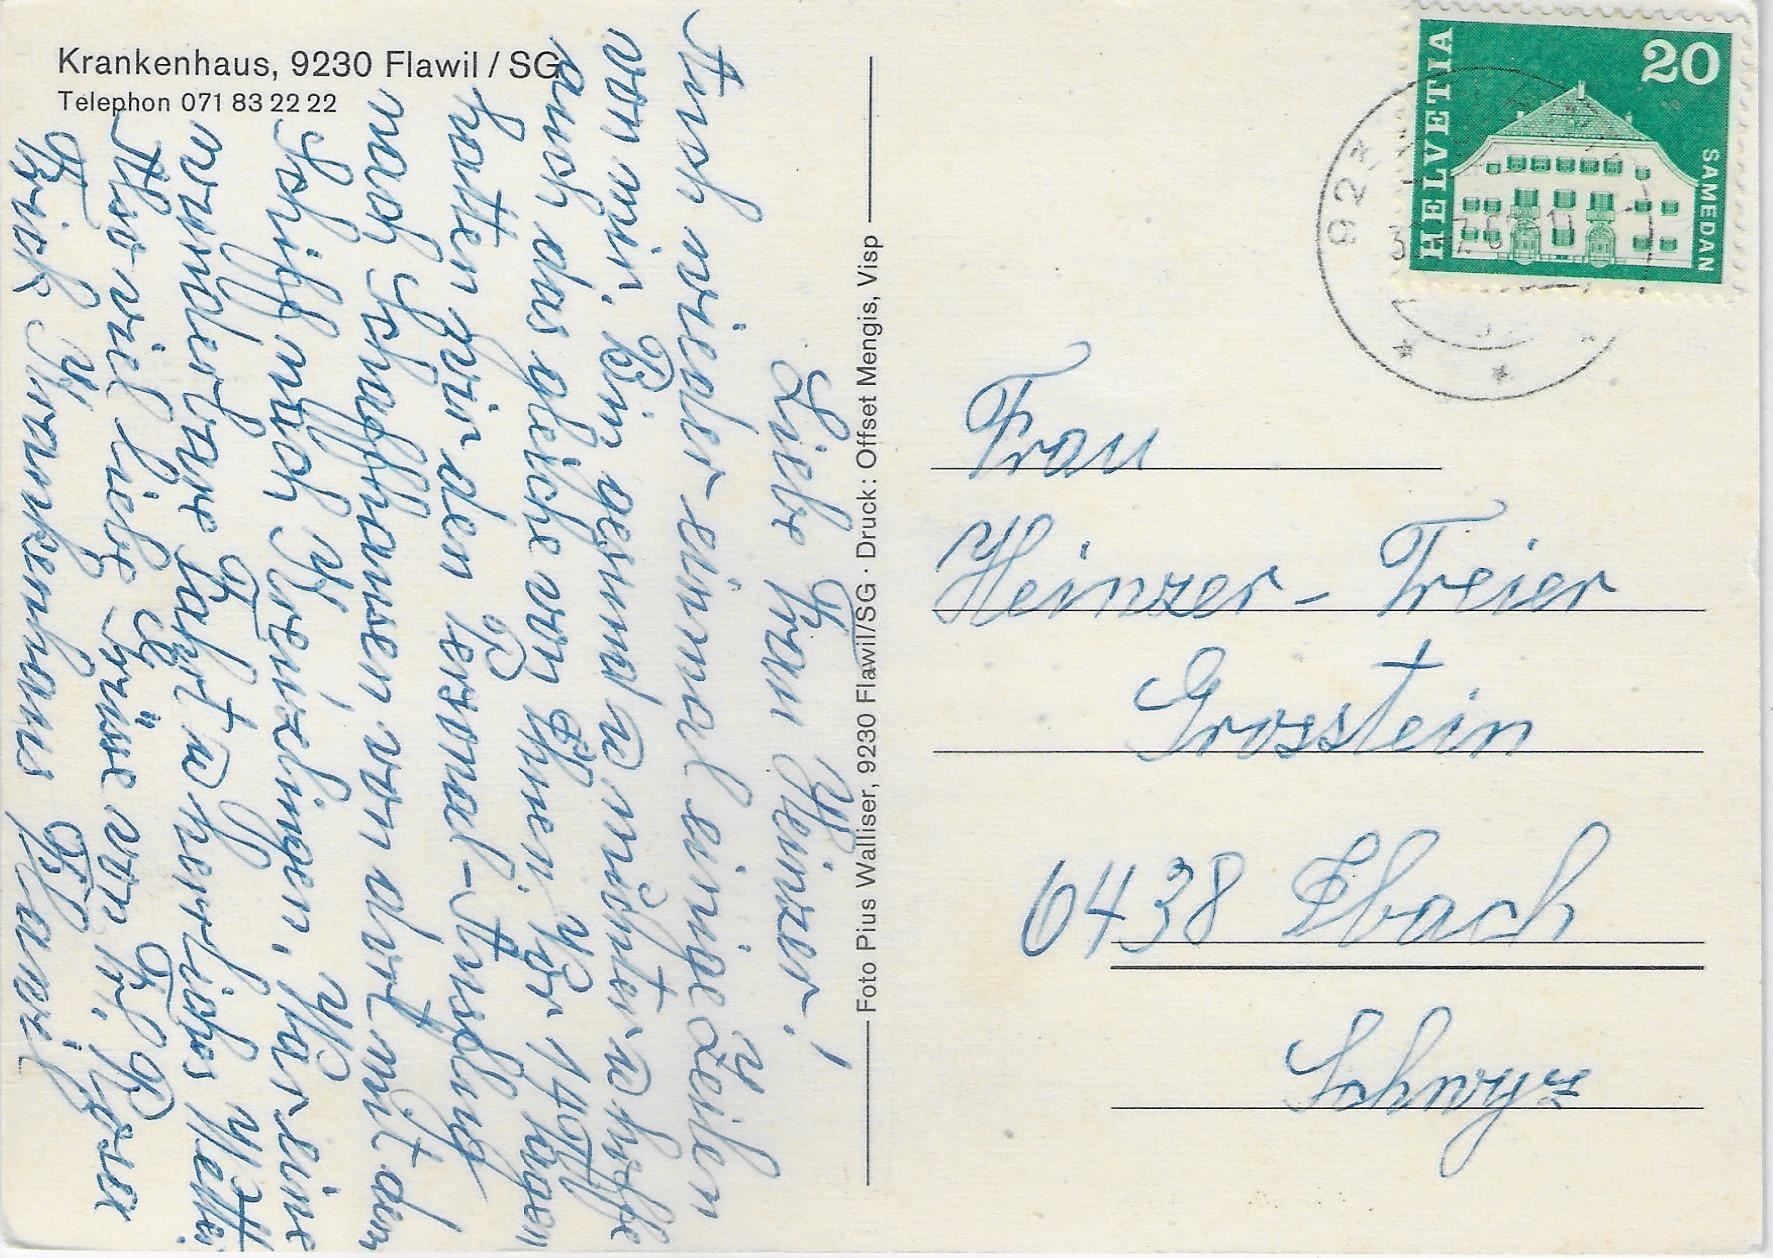 Krankenhaus, 9230 Flawil / SG
Telephon 071 83 22 22
Liebe Frau Heinzer!
Auch wieder einmal einige Zeilen
von mir. Bin gesund u munter u hoffe
auch das gleiche von Ihnen. Vor 14 Tagen
hatten wir den Personal-Ausflug
nach Schaffhausen von dort mit dem
Schiff nach Kreuzlingen. War eine
wunderbare Fahrt u herrliches Wetter
Also viel liebe Grüsse von Frl. Rosa
Frick Krankenhaus Flawil
Foto Pius Walliser, 9230 Flawil/SG · Druck: Offset Mengis, Visp
HELVETIA
20
SAMEDAN
923
Frau
Heinzer - Freier
Grosstein
6438 Ibach
Schwyz